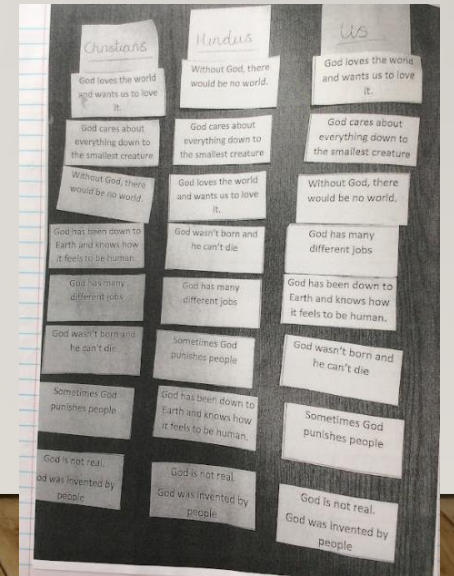 Christians
God loves the world
and wants us to love
it.
God cares about
everything down to
the smallest creature
Without God, there
would be no world.
God has been down to
Earth and knows how
it feels to be human.
God has many
different jobs
God wasn't born and
he can't die
Sometimes God
punishes people
God is not real.
od was invented by
people
Hindus
Without God, there
would be no world.
God cares about
everything down to
the smallest creature
God loves the world
and wants us to love
it.
God wasn't born and
he can't die
God has many
different jobs
Sometimes God
punishes people
God has been down to
Earth and knows how
it feels to be human.
God is not real.
God was invented by
people
Us
God loves the world
and wants us to love
it.
God cares about
everything down to
the smallest creature
Without God, there
would be no world.
God has many
different jobs
God has been down to
Earth and knows how
it feels to be human.
God wasn't born and
he can't die
Sometimes God
punishes people
God is not real.
God was invented by
people